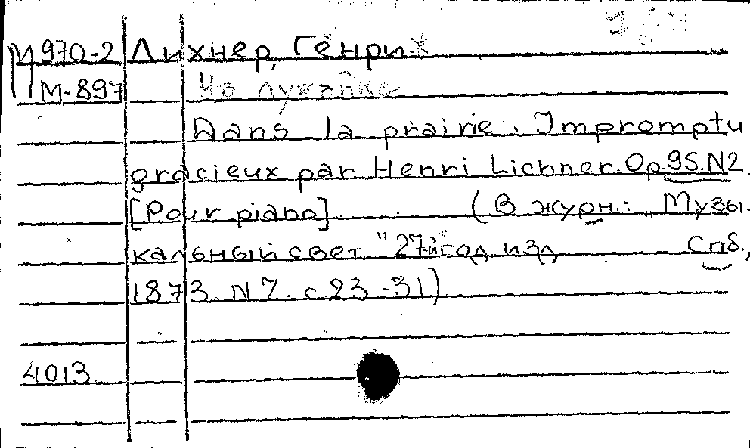 М 970-2 Лихнер, Генрих
М-897 На лужайке
Dans la prairie. Impromptu
gracieux par Henri Lichner. Op. 95. N2.
[Pour piano] (В журн: Музы-
кальный свет "27й год изд Спб,
1873. N 7. с 23-31)
4013